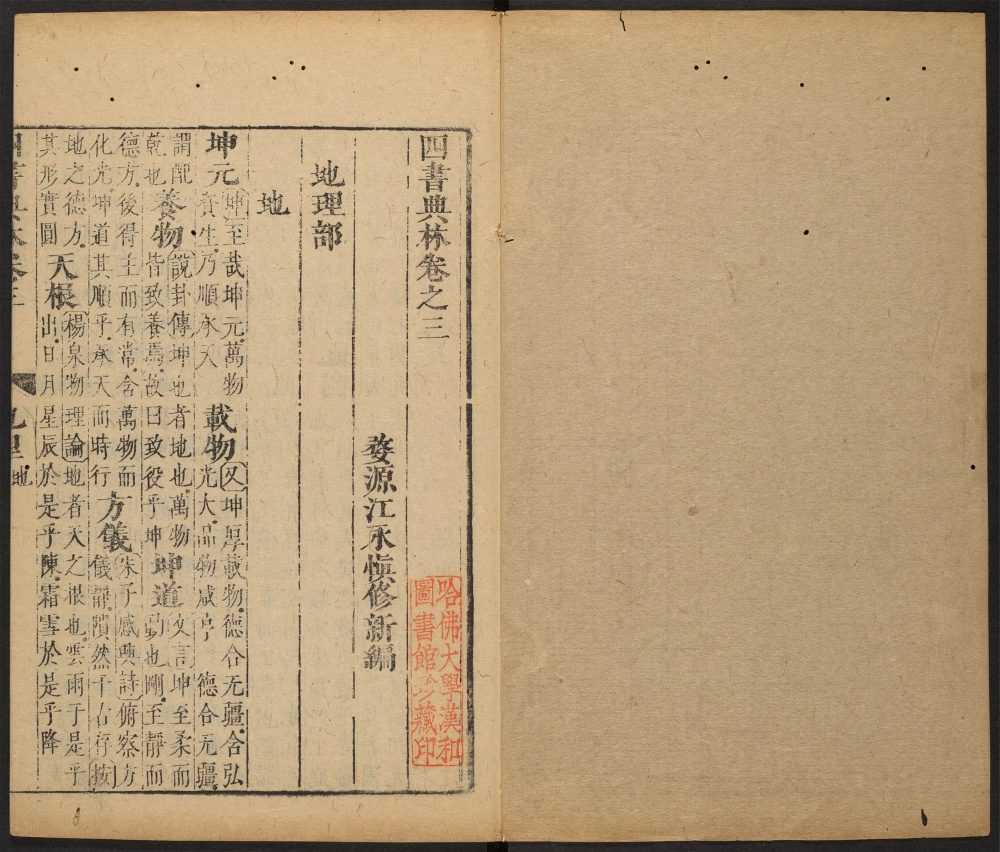 四書典林卷之三
婺源江永慎修新編
哈佛大學漢和
圖書館珍藏印
地理部
地
坤元 坤至哉坤元萬物資生乃順承天 載物 又坤厚載物德合无疆含弘光大品物咸亨 德合无疆
謂配乾也 養物 說卦傳坤也者地也萬物皆致養焉故曰致役乎坤 坤道 文言坤至柔而動也剛至靜而
德方後得主而有常含萬物而化光坤道其順乎承天而時行 方儀 朱子感興詩俯察方儀靜隤然千古存 按
地之德方其形實圓 天根 楊泉物理論地者天之根也雲雨于是乎出日月星辰於是乎陳霜雪於是乎降
四書典林卷三 地理 地